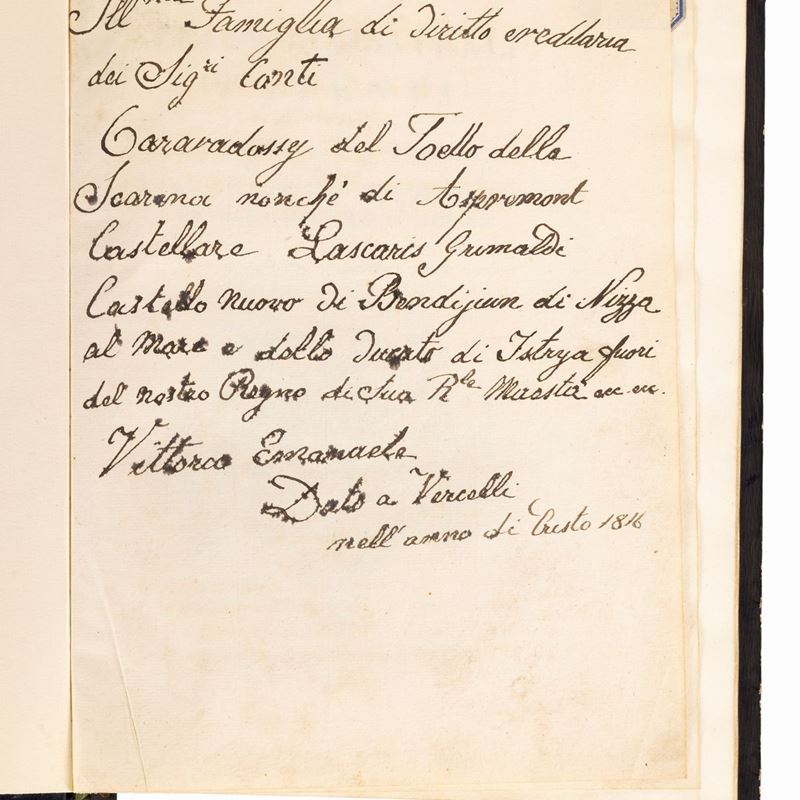 Ill^ma Famiglia di diritto ereditaria
dei Sig^ri Conti
Cararadossy del Toello della
Scarena nonchè di Aspremont
Castellare Lascaris Grimaldi
Castello nuovo di Bendijiun di Nizza
al Mare e dello Ducato di Istrya fuori
del nostro Regno di Sua R^le Maestà ecc. ecc.
Vittorio Emanuele
Dato a Vercelli
nell'anno di Cristo 1816